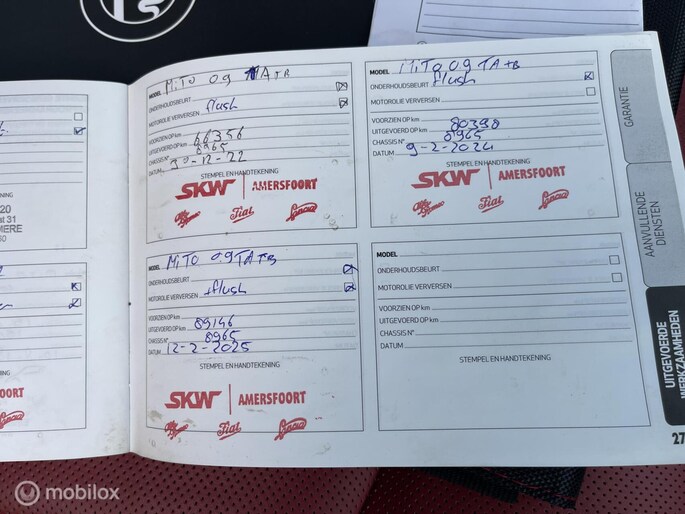 20
at 31
MERE
50
SKW AMERSFOORT
MODEL MiTO 0.9 TA TB
ONDERHOUDSBEURT
MOTOROLIE VERVERSEN flush
VOORZIEN OP km
UITGEVOERD OP km 66356
CHASSIS N° 8965
DATUM 30-12-22
STEMPEL EN HANDTEKENING
SKW AMERSFOORT
Alfa Romeo Fiat Lancia
MODEL MiTO 0.9 TA TB
ONDERHOUDSBEURT flush
MOTOROLIE VERVERSEN
VOORZIEN OP km
UITGEVOERD OP km 80398
CHASSIS N° 8965
DATUM 9-2-2024
STEMPEL EN HANDTEKENING
SKW AMERSFOORT
Alfa Romeo Fiat Lancia
MODEL MiTO 0.9 TA TB
ONDERHOUDSBEURT
MOTOROLIE VERVERSEN flush
VOORZIEN OP km
UITGEVOERD OP km 89146
CHASSIS N° 8965
DATUM 12-2-2025
STEMPEL EN HANDTEKENING
SKW AMERSFOORT
Alfa Romeo Fiat Lancia
MODEL
ONDERHOUDSBEURT
MOTOROLIE VERVERSEN
VOORZIEN OP km
UITGEVOERD OP km
CHASSIS N°
DATUM
STEMPEL EN HANDTEKENING
GARANTIE
AANVULLENDE
DIENSTEN
UITGEVOERDE
WERKZAAMHEDEN
27
mobilox